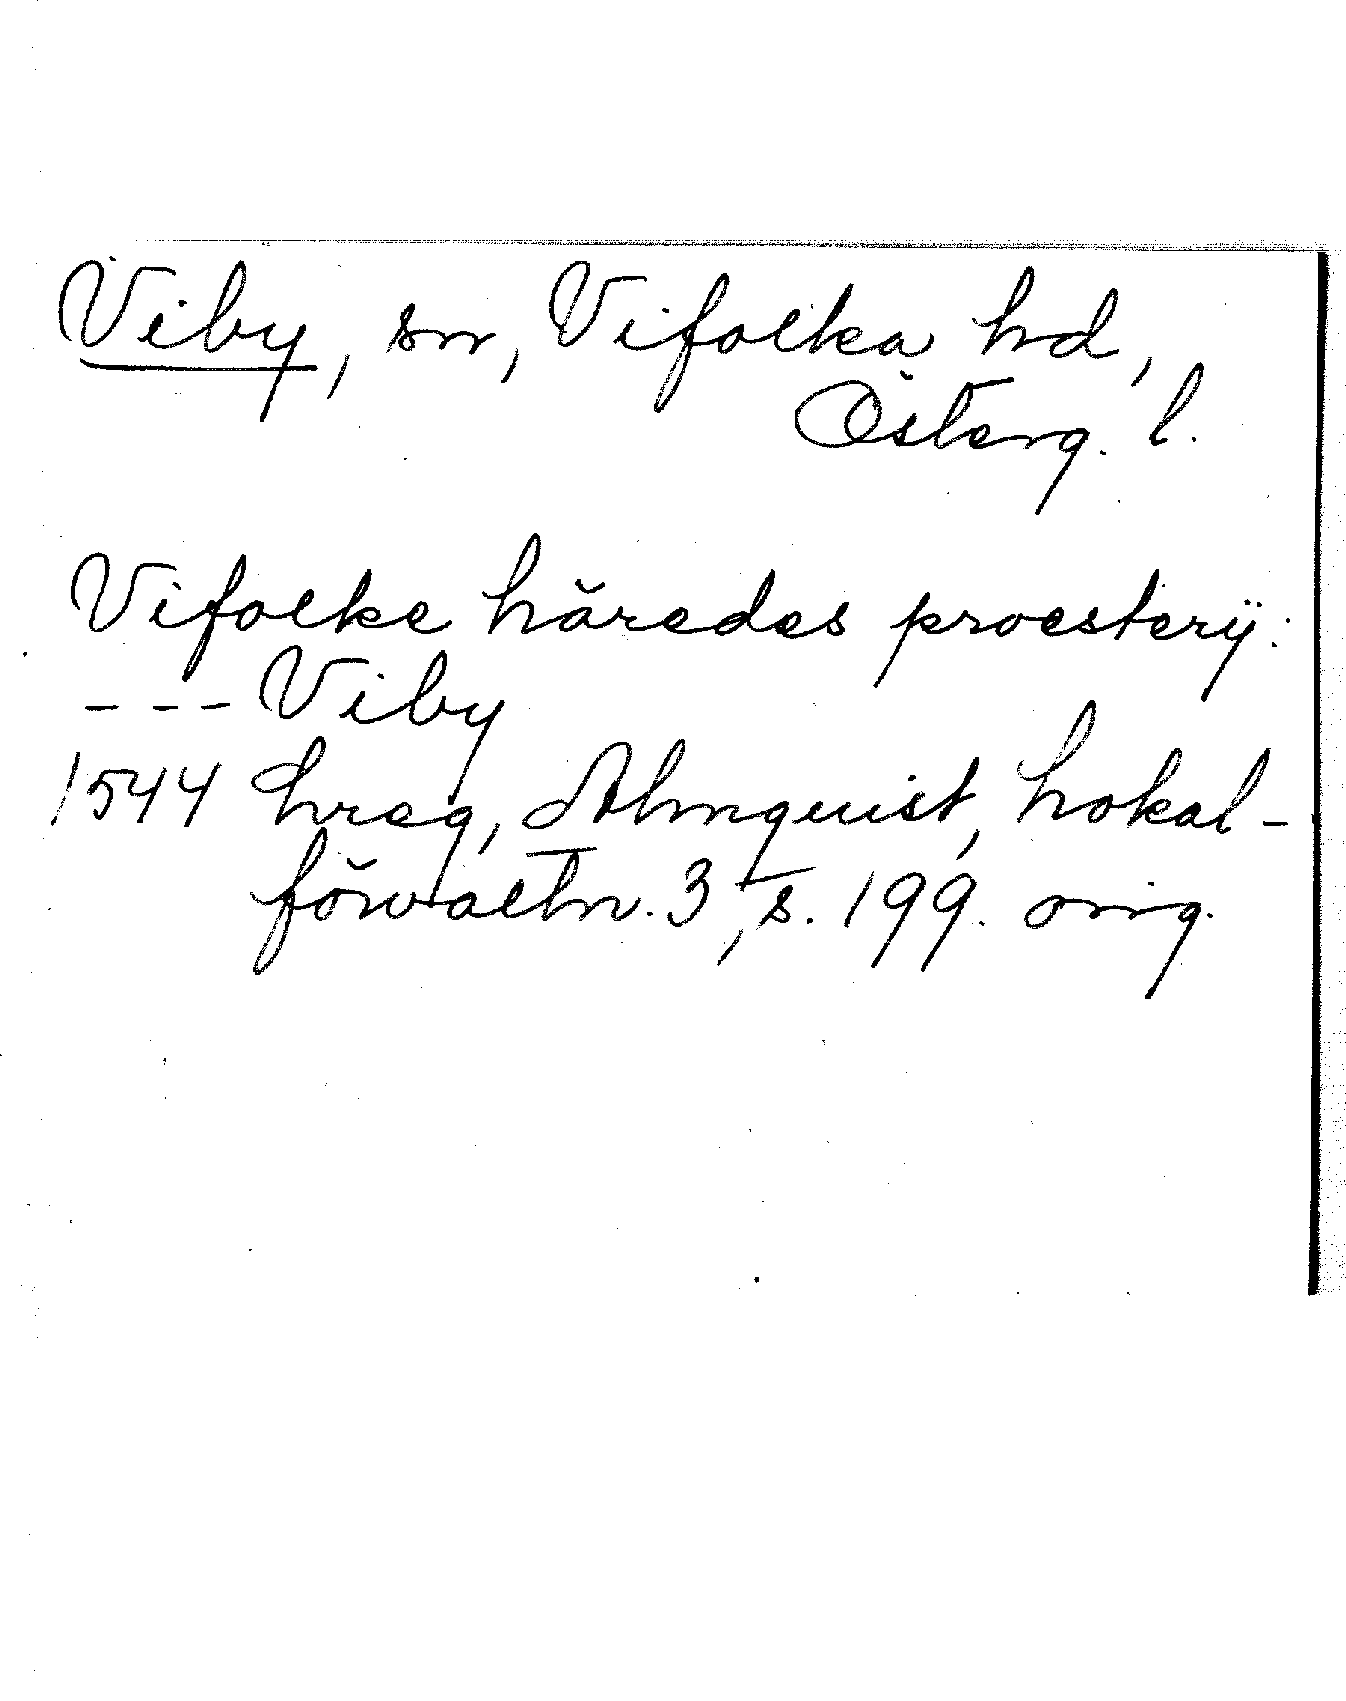 Viby, sn, Vifolka hd,
Österg. l.
Vifolke häredes proesterÿ:
--- Viby
1544 hreg, Almquist, Lokal-
förvaltn. 3, s. 199. orig.